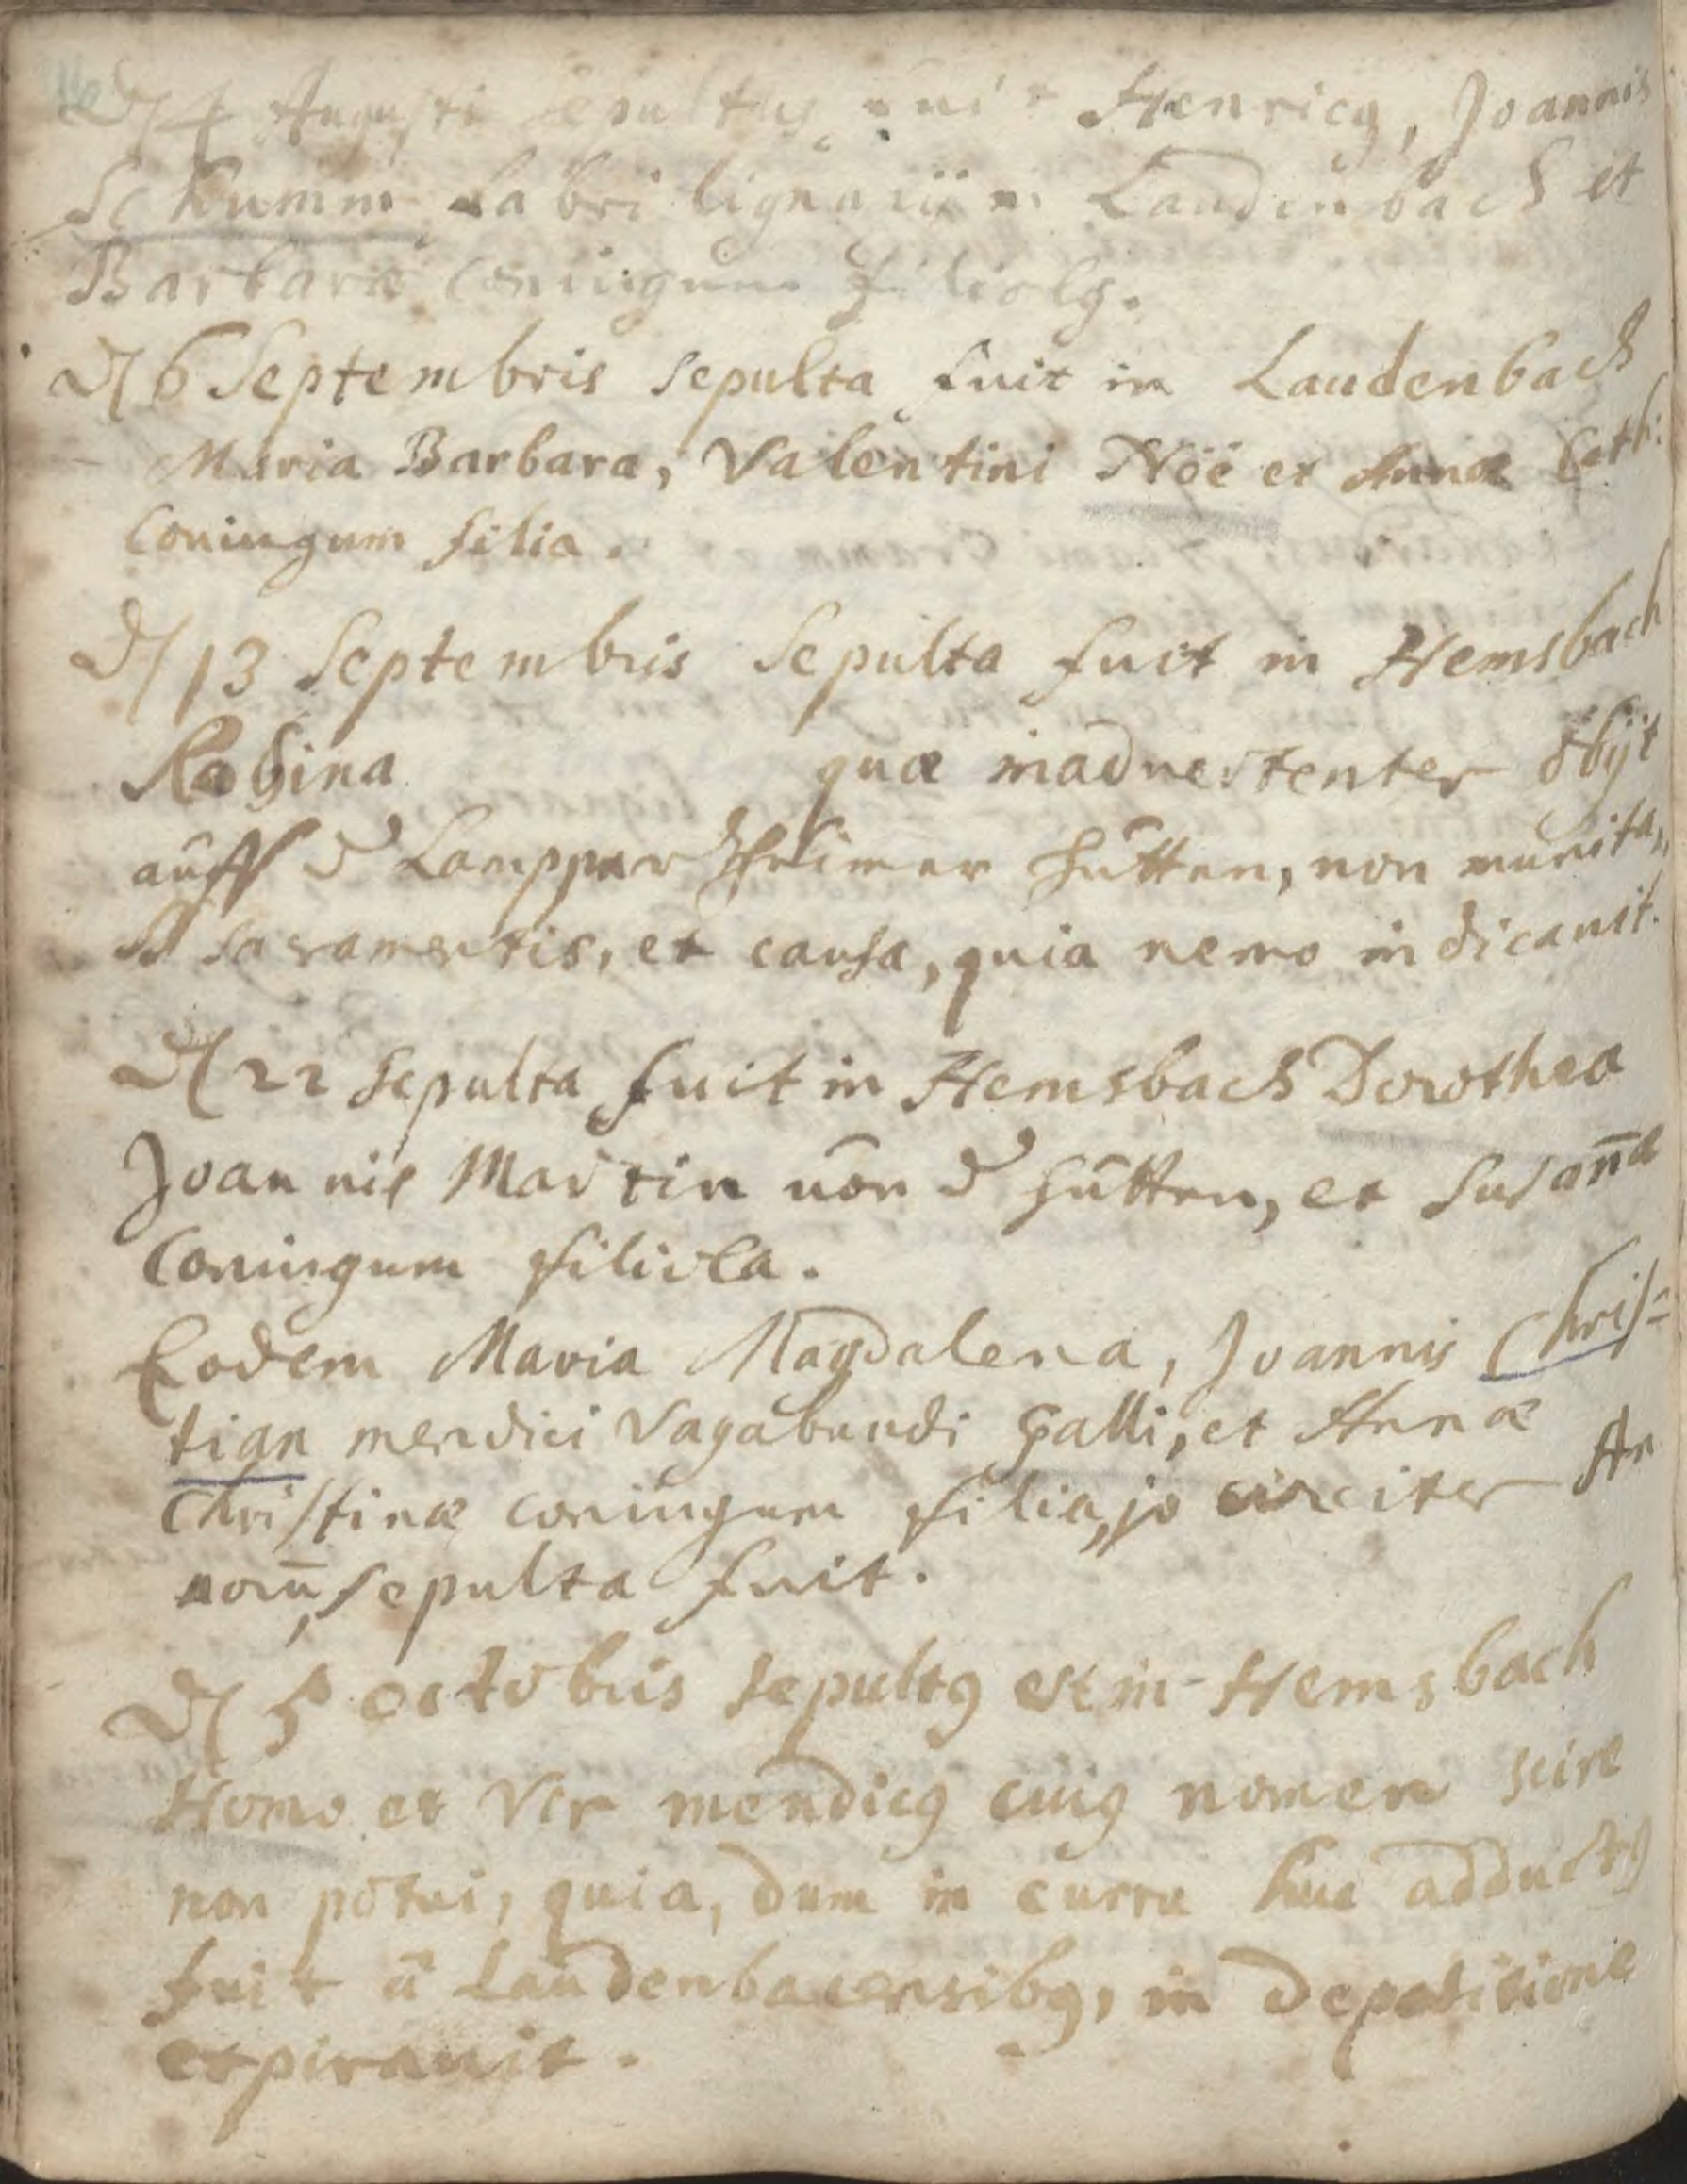 D 4 Augusti sepultus fuit Henricꝰ, Joannis
Schumm fabri lignarii in Laudenbach et
Barbaræ coniugum filiolꝰ.
D 6 Septembris sepulta fuit in Laudenbach
Maria Barbara, Valentini Nöe et Annæ Cath:
Coniugum filia.
D 13 Septembris sepulta fuit in Hemsbach
Regina quæ inadvertenter obijt
auff d Lampperdheimer hütten, non munita
SS sacramentis, et causa, quia nemo indicauit.
D 22 sepulta fuit in Hemsbach Dorothea
Joannis Martin von d hütten, et Susan̄æ
Coniugum filiola.
Eodem Maria Magdalena, Joannis Chris=
tian mendici Vagabundi Galli, et Annæ
Christinæ coniugum filia, jo circiter An
norū, sepulta fuit.
D 5 octobris sepultꝰ est in Hemsbach
Homo et Vir mendicꝰ cuiꝰ nomen scire
non potui, quia, dum in curru huc adductꝰ
fuit a Laudenbacensibꝰ, in depositione
expirauit.